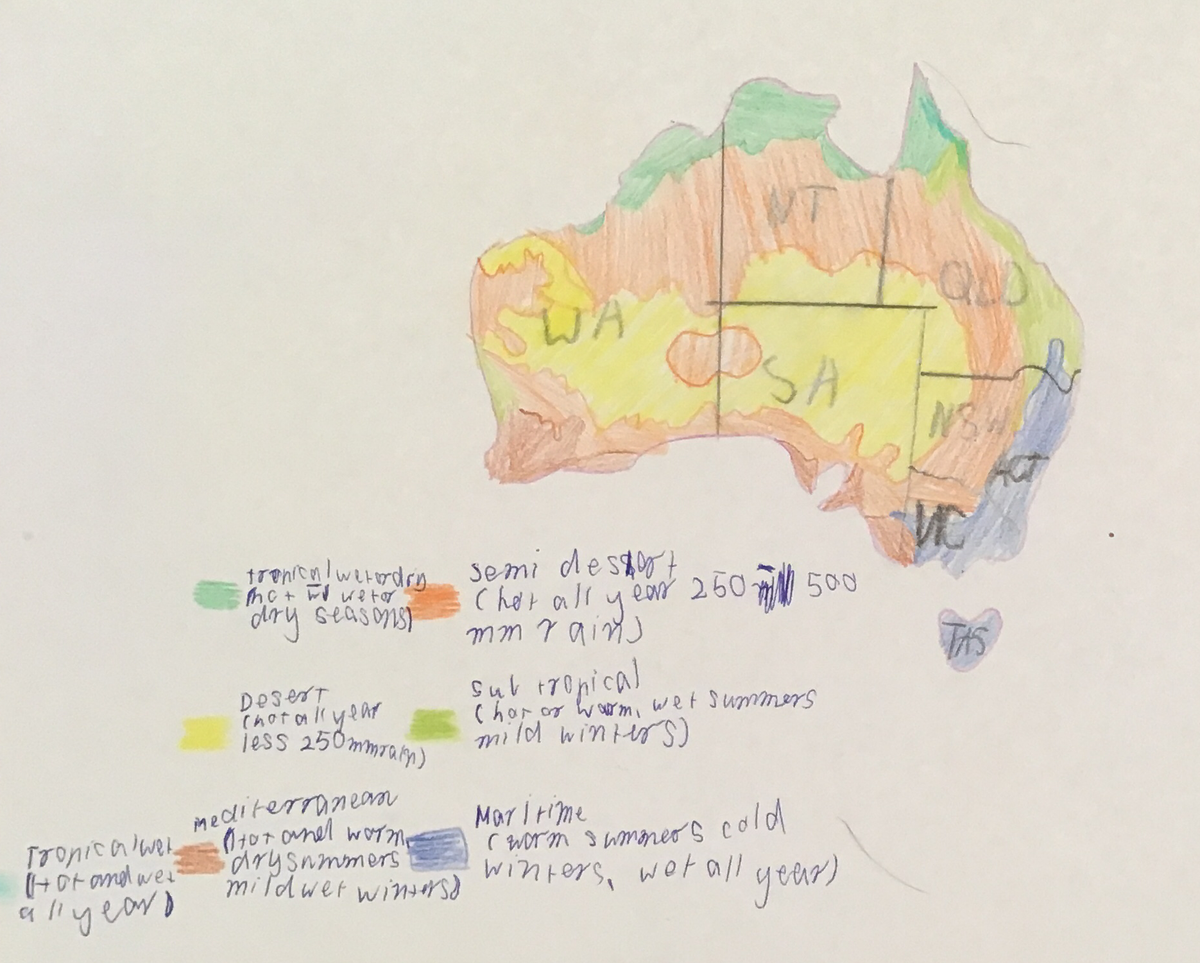 NT
QLD
WA
SA
NSW
ACT
VIC
TAS
tropical wet or dry
hot wet or
dry seasons)
semi desert
(hot all year 250 500
mm rain)
Desert
(hot all year
less 250mm rain)
Sub tropical
(hot or warm, wet summers
mild winters)
Mediterranean
(Hot and worm,
dry summers
mild wet winters)
Maritime
(worm summers cold
winters, wet all year)
Tropical wet
(Hot and wet
all year)